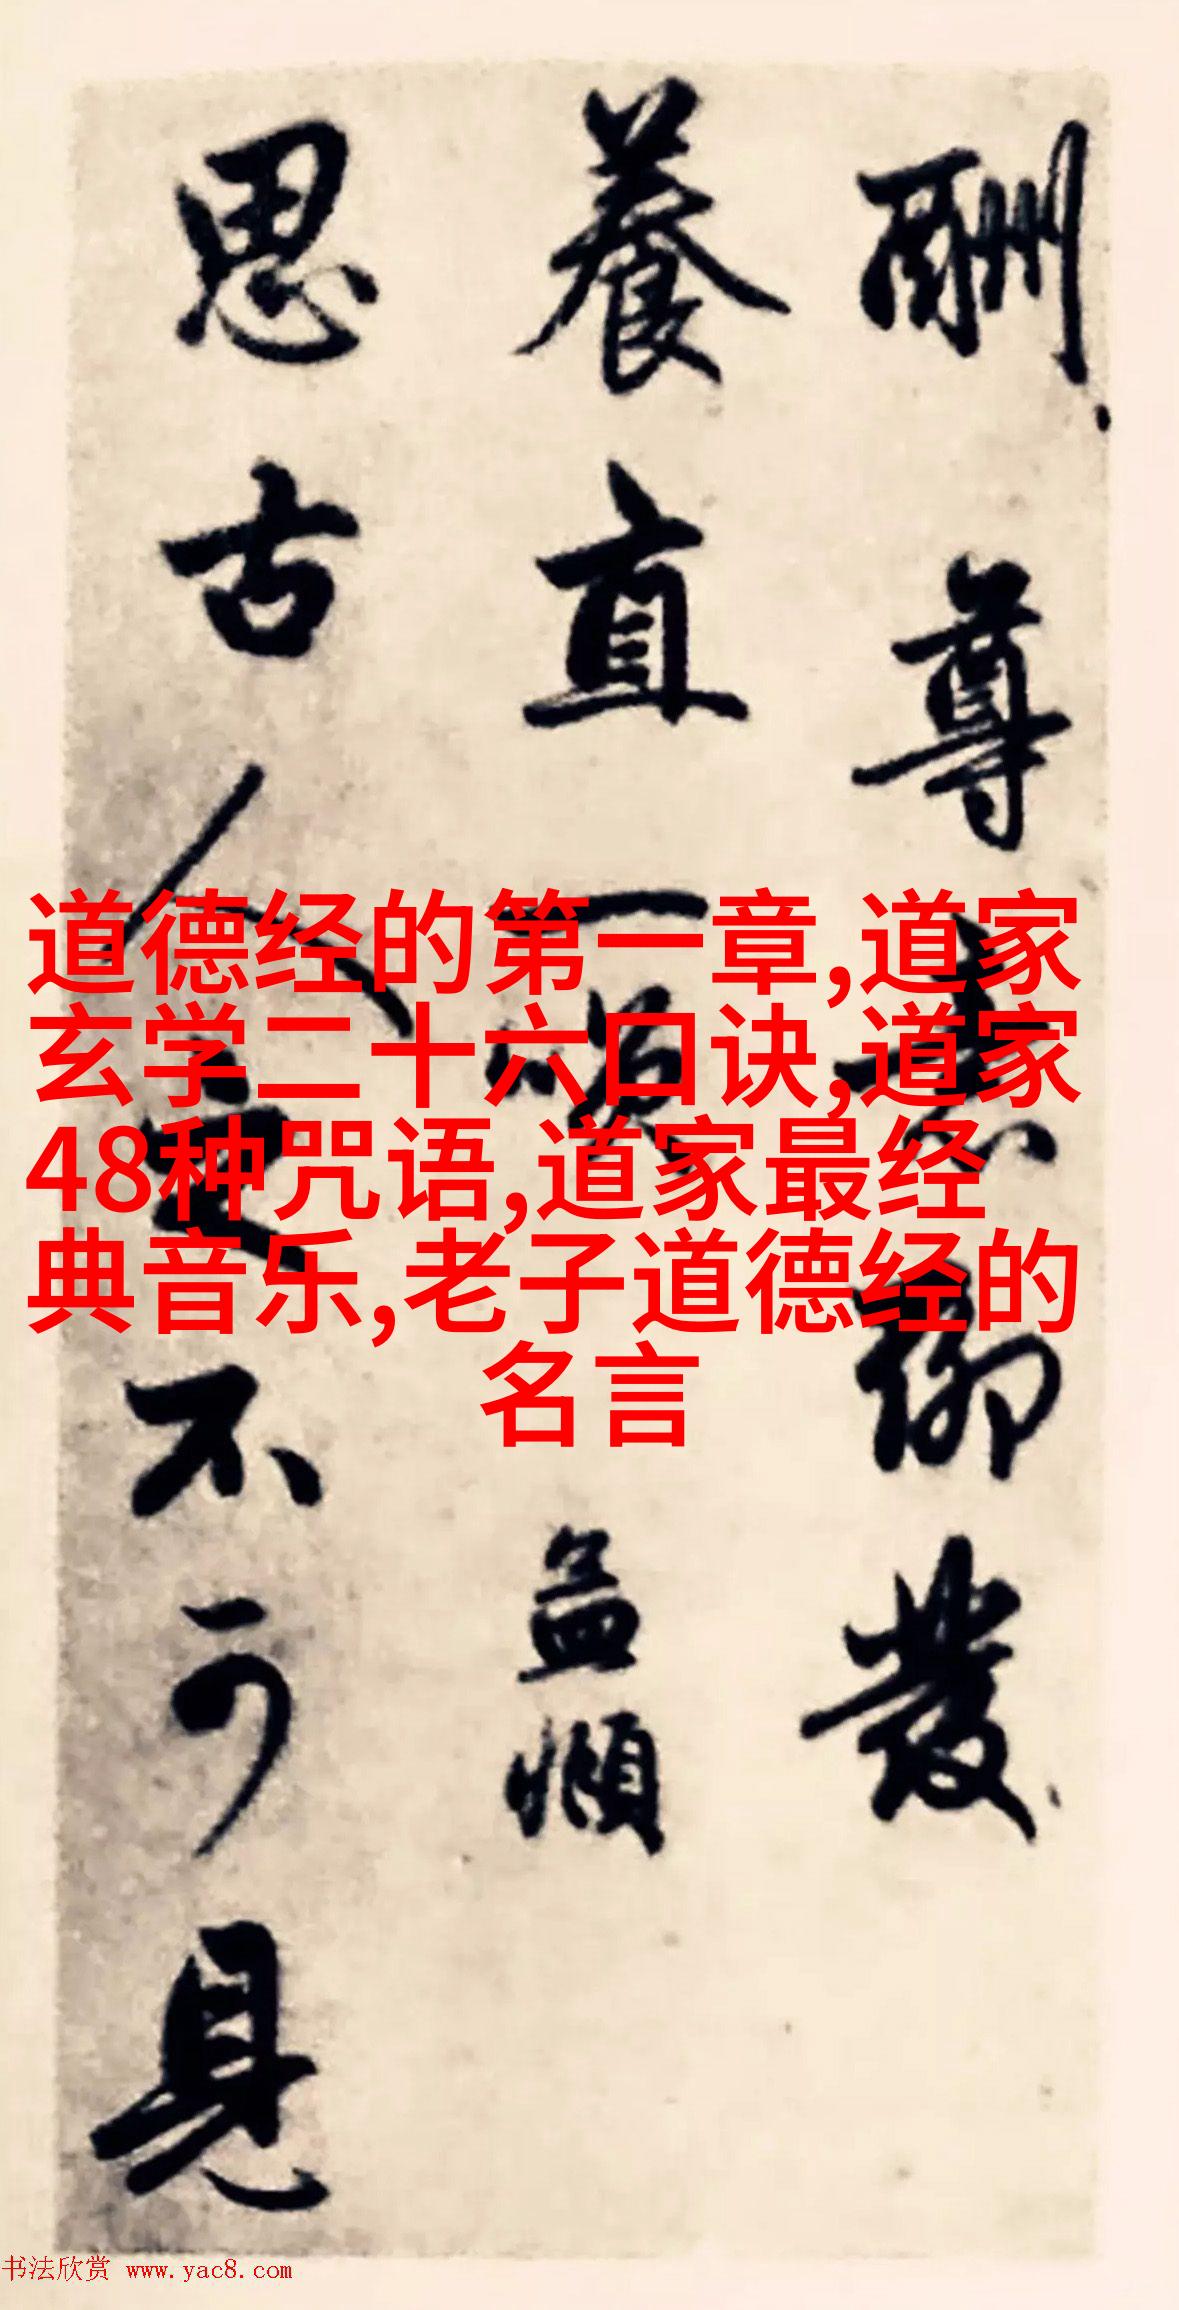 酬尊素鄉發
養直一 頌
孟頫
思古人之不可見
道德经的第一章,道家
玄学二十六口诀,道家
48种咒语,道家最经
典音乐,老子道德经的
名言
书法欣赏 www.yac8.com